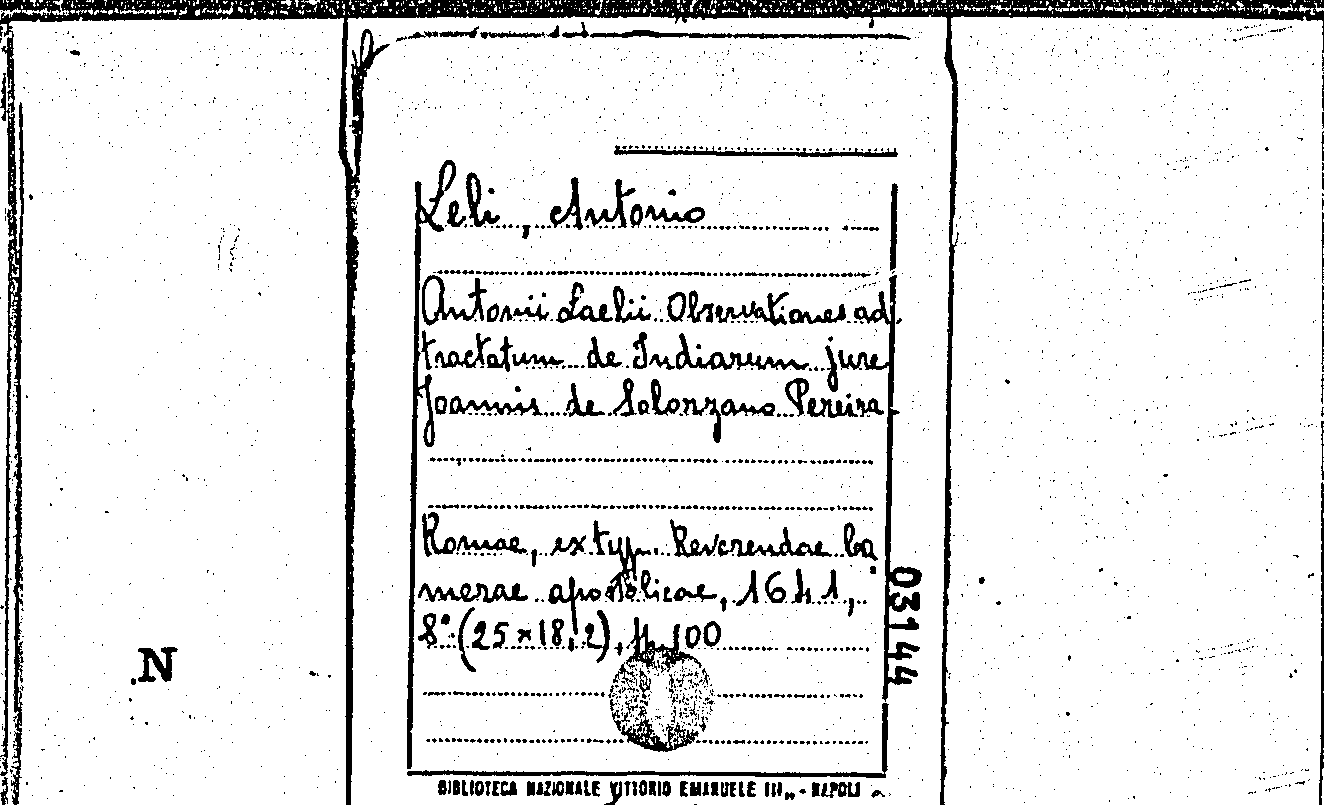 Leli, Antonio
Antonii Laelii Observationes ad
tractatum de Indiarum jure
Joannis de Solorzano Pereira.
Romae, ex typ. Reverendae Ca
merae apostolicae, 1641,
8° (25 × 18,2), pp. 100
03144
N
BIBLIOTECA NAZIONALE VITTORIO EMANUELE III„ - NAPOLI